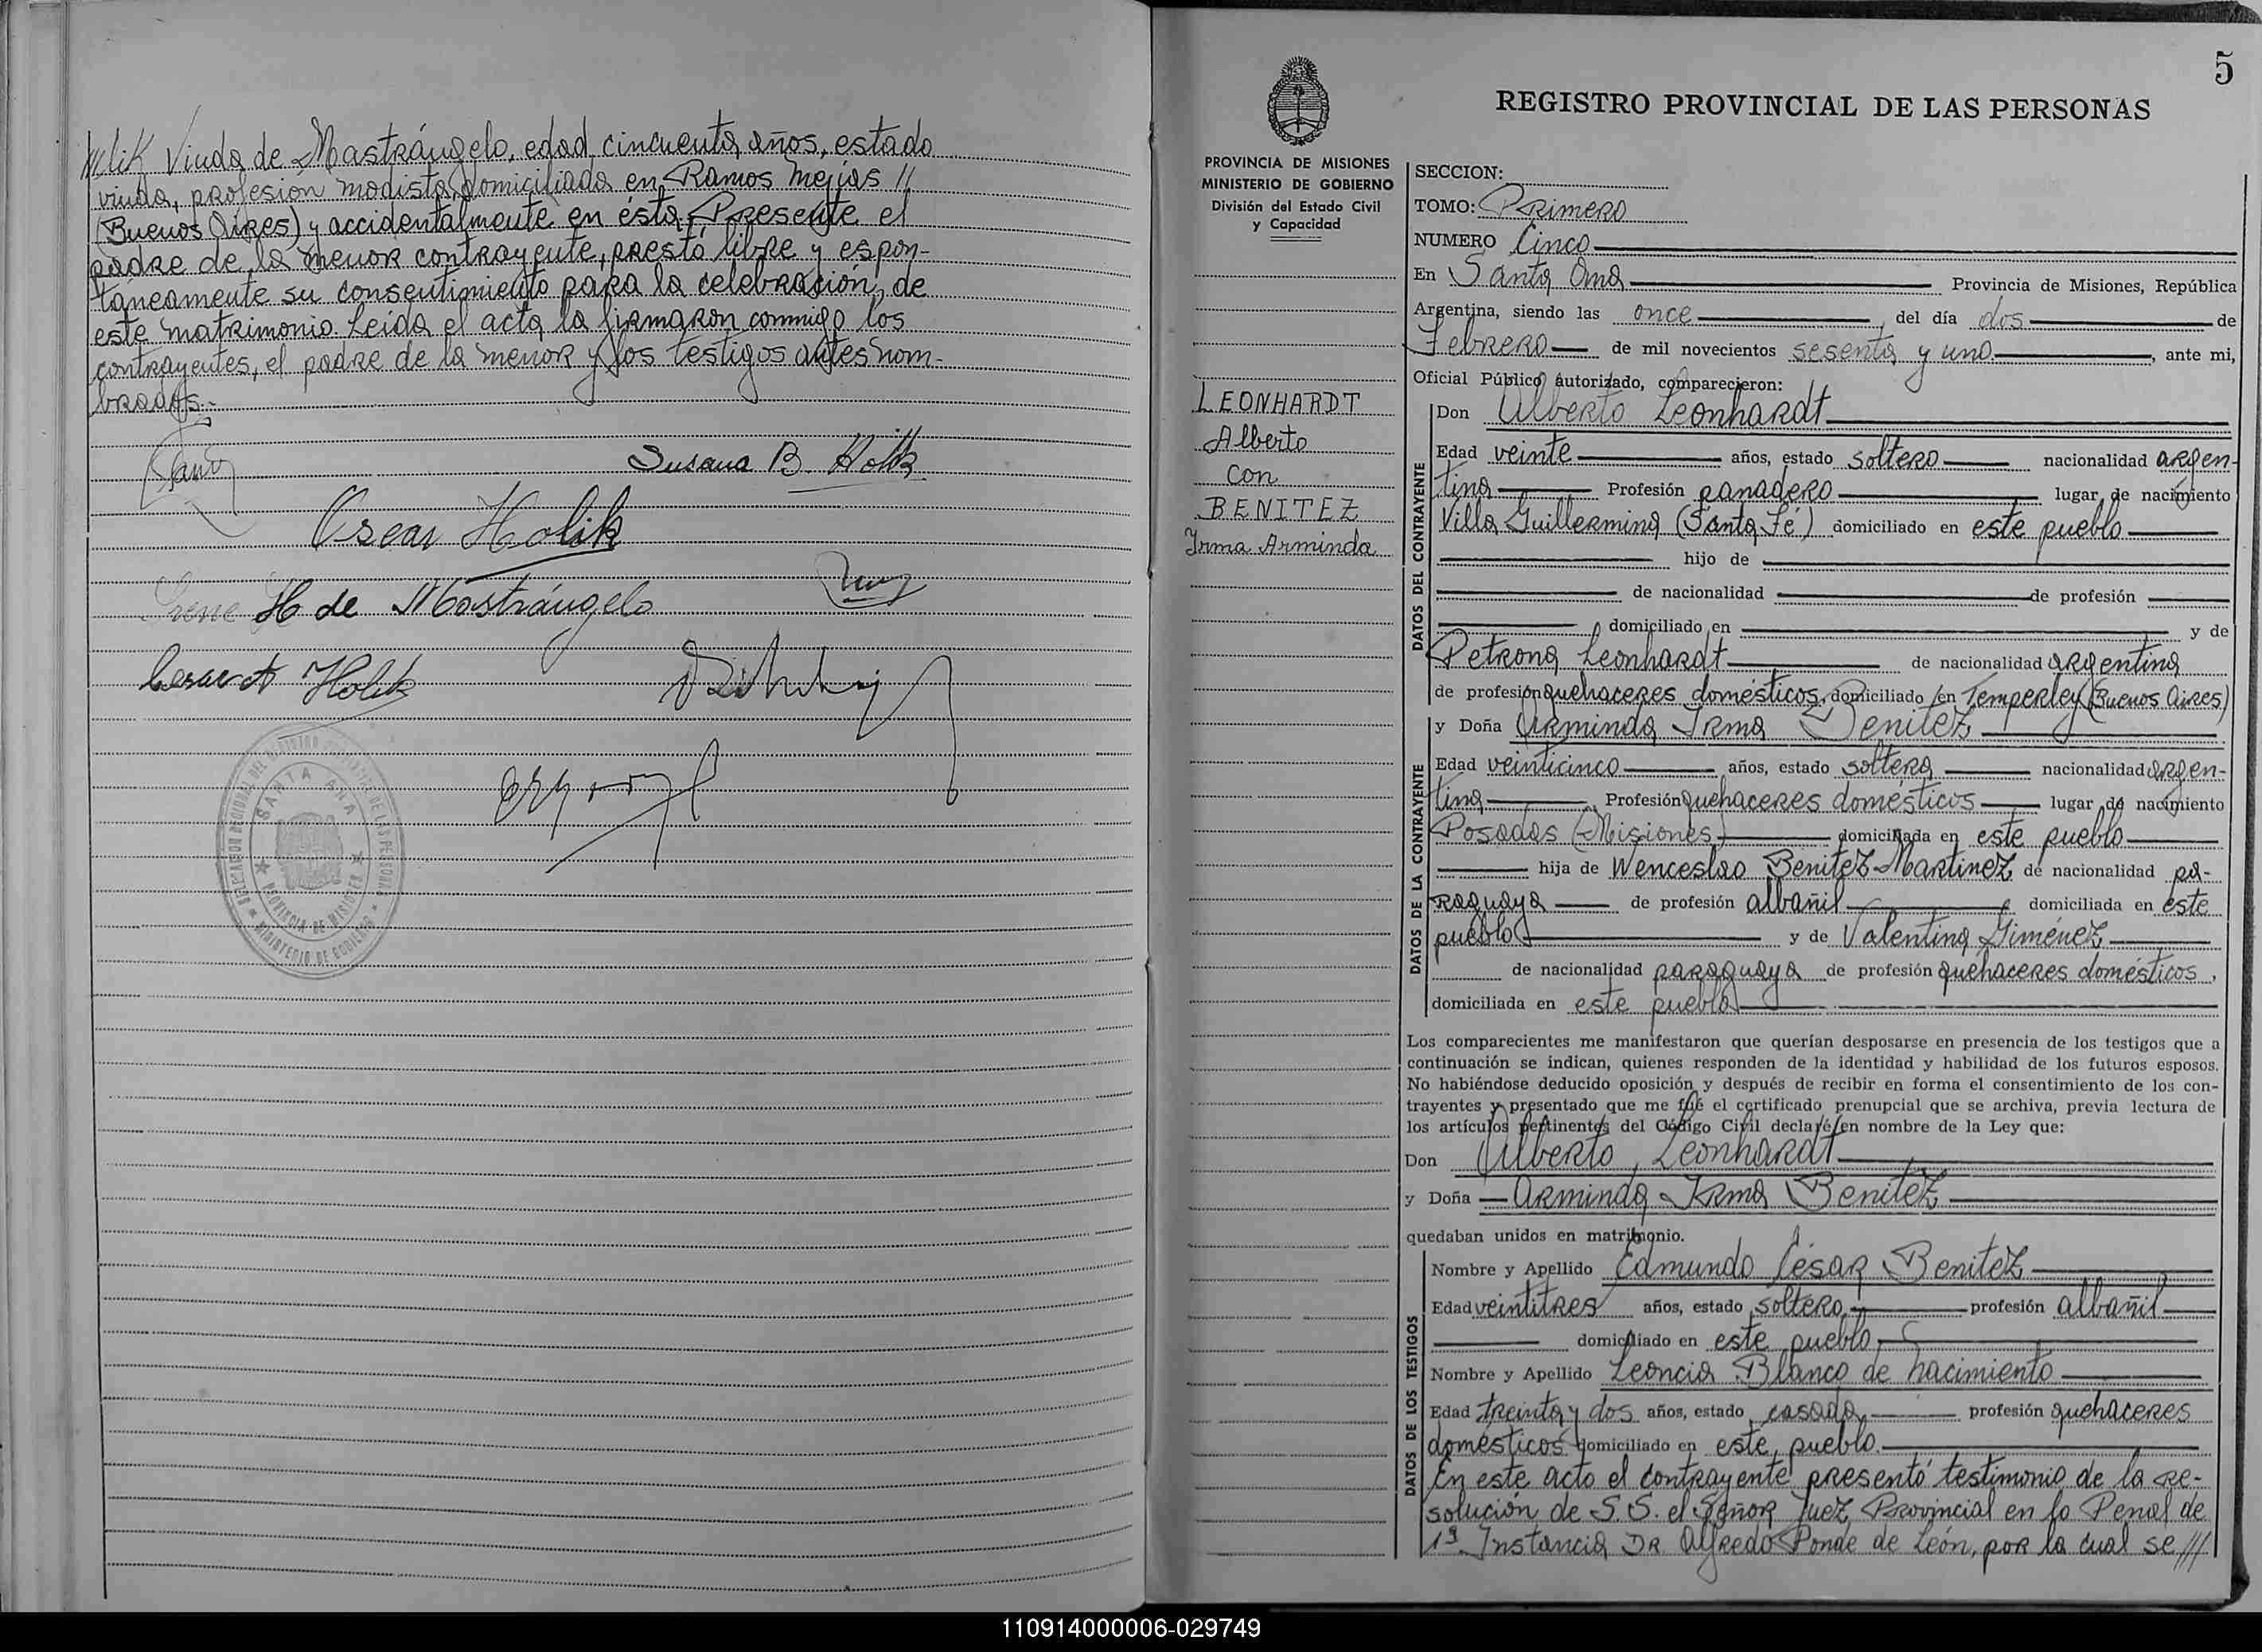 Holik Viuda de Mastrángelo, edad cincuenta años, estado
viuda, profesión modista, domiciliada en Ramos Mejías //
(Buenos Aires) y accidentalmente en ésta. Presente el
padre de la menor contrayente, prestó libre y espon-
táneamente su consentimiento para la celebración de
este matrimonio. Leída el acta la firmaron conmigo los
contrayentes, el padre de la menor y los testigos antes nom-
brados.-
Susana B. Holik
Oscar Holik
Irene H de Mastrángelo
Cesar A Holik
SANTA ANA
PROVINCIA DE MISIONES
MINISTERIO DE GOBIERNO
5
REGISTRO PROVINCIAL DE LAS PERSONAS
PROVINCIA DE MISIONES
MINISTERIO DE GOBIERNO
División del Estado Civil
y Capacidad
LEONHARDT
Alberto
con
BENITEZ
Irma Arminda
SECCION:
TOMO: Primero
NUMERO Cinco
En Santa Ana Provincia de Misiones, República
Argentina, siendo las once, del día dos de
Febrero de mil novecientos sesenta y uno, ante mi,
Oficial Público autorizado, comparecieron:
DATOS DEL CONTRAYENTE
Don Alberto Leonhardt
Edad veinte años, estado soltero nacionalidad argen-
tina Profesión panadero lugar de nacimiento
Villa Guillermina (Santa Fé) domiciliado en este pueblo
hijo de
de nacionalidad de profesión
domiciliado en y de
Petrona Leonhardt de nacionalidad argentina
de profesión quehaceres domésticos, domiciliado en Temperley (Buenos Aires)
y Doña Arminda Irma Benitez
DATOS DE LA CONTRAYENTE
Edad veinticinco años, estado soltera nacionalidad argen-
tina, Profesión quehaceres domésticos lugar de nacimiento
Posadas (Misiones) domiciliada en este pueblo
hija de Wenceslao Benitez Martinez de nacionalidad pa-
raguaya de profesión albañil domiciliada en este
pueblo y de Valentina Giménez
de nacionalidad paraguaya de profesión quehaceres domésticos,
domiciliada en este pueblo
Los comparecientes me manifestaron que querían desposarse en presencia de los testigos que a
continuación se indican, quienes responden de la identidad y habilidad de los futuros esposos.
No habiéndose deducido oposición y después de recibir en forma el consentimiento de los con-
trayentes y presentado que me fué el certificado prenupcial que se archiva, previa lectura de
los artículos pertinentes del Código Civil declaré en nombre de la Ley que:
Don Alberto Leonhardt
y Doña Arminda Irma Benitez
quedaban unidos en matrimonio.
DATOS DE LOS TESTIGOS
Nombre y Apellido Edmundo César Benitez
Edad veintitres años, estado soltero, profesión albañil
domiciliado en este pueblo,
Nombre y Apellido Leoncia Blanco de Nacimiento
Edad treinta y dos años, estado casada, profesión quehaceres
domésticos domiciliado en este pueblo.
En este acto el contrayente presentó testimonio de la re-
solución de S.S. el Señor Juez Provincial en lo Penal de
1ª Instancia Dr Alfredo Ponde de León, por la cual se ///
110914000006-029749